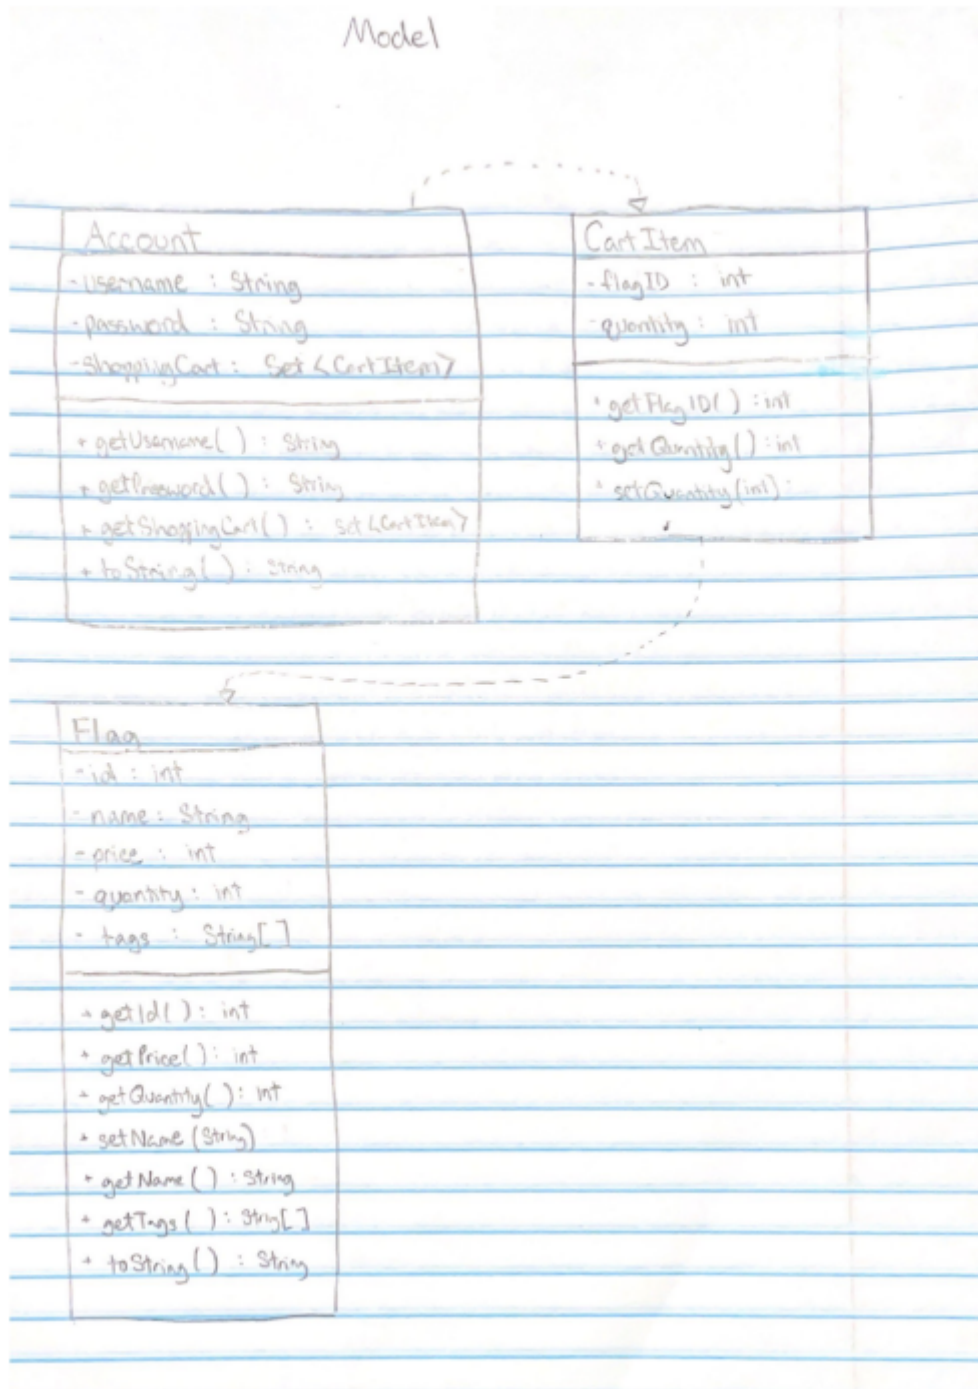 Model
Account
- username : String
- password : String
- shoppingCart : Set <CartItem>
+ getUsername( ) : String
+ getPassword( ) : String
+ getShoppingCart( ) : Set <CartItem>
+ toString( ) : String
CartItem
- flagID : int
- quantity : int
+ getFlagID( ) : int
+ getQuantity( ) : int
+ setQuantity(int) :
Flag
- id : int
- name : String
- price : int
- quantity : int
- tags : String[ ]
+ getId( ) : int
+ getPrice( ) : int
+ getQuantity( ) : int
+ setName (String)
+ getName ( ) : String
+ getTags ( ) : String[ ]
+ toString( ) : String